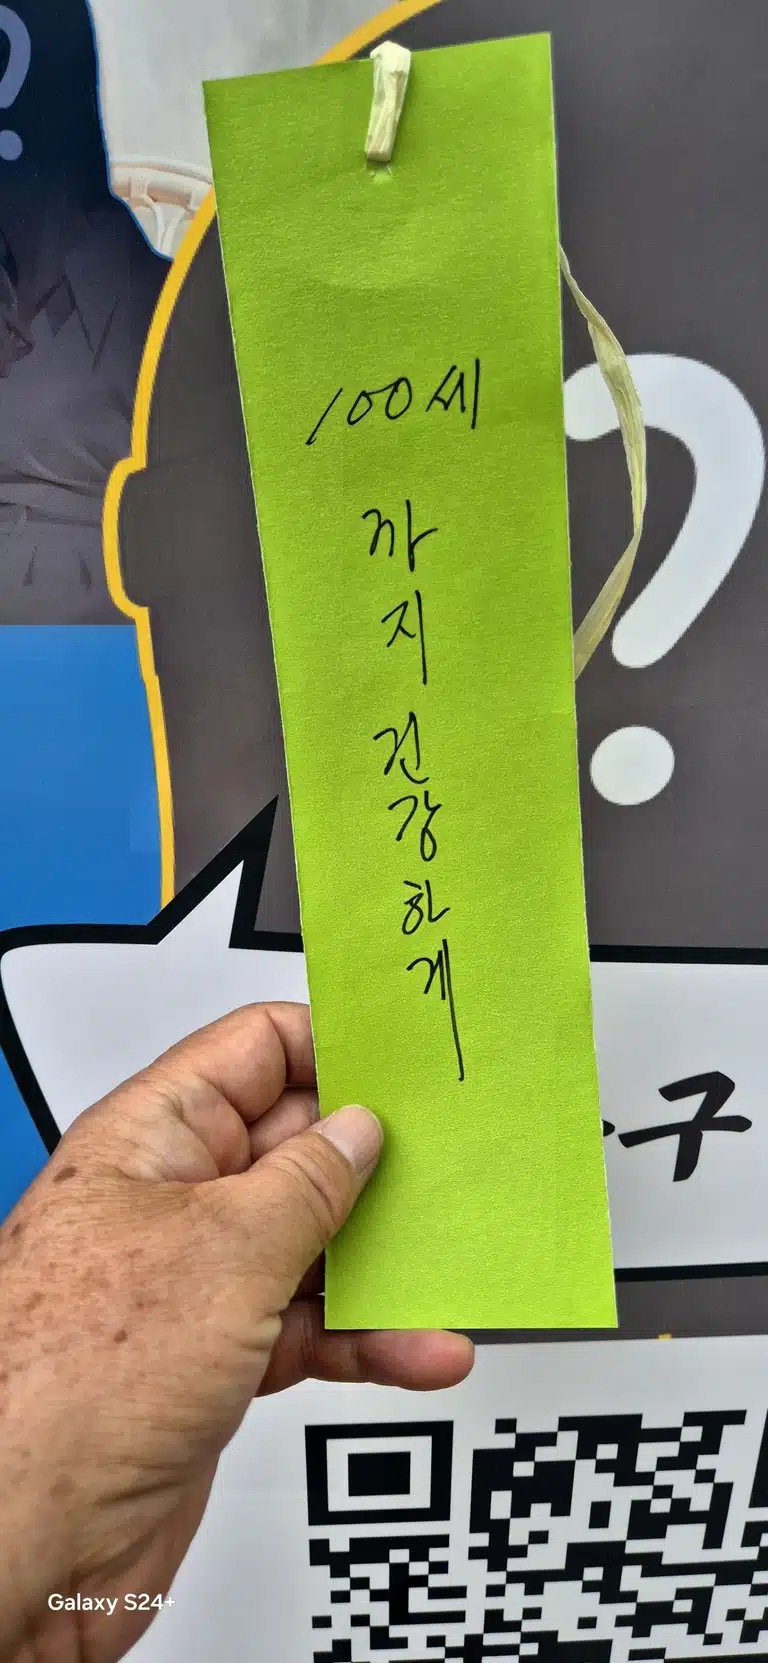 ?
100세
까
지
건
강
하
게
?
구
Galaxy S24+